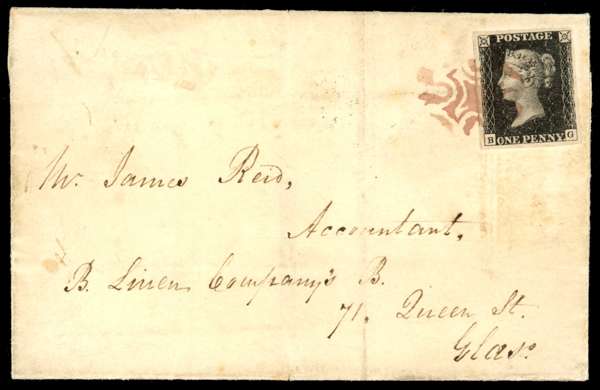 POSTAGE
B G
ONE PENNY
Mr. James Reid,
Accountant,
B. Linen Company's B.
71. Queen St.
Glasº